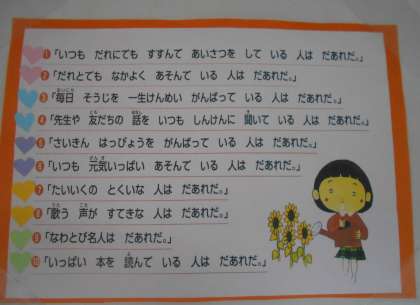 1「いつも だれにでも すすんで あいさつを して いる 人は だあれだ。」
2「だれとでも なかよく あそんで いる 人は だあれだ。」
3「毎日 そうじを 一生けんめい がんばって いる 人は だあれだ。」
4「先生や 友だちの 話を いつも しんけんに 聞いて いる 人は だあれだ。」
5「さいきん はっぴょうを がんばって いる 人は だあれだ。」
6「いつも 元気いっぱい あそんで いる 人は だあれだ。」
7「たいいくの とくいな 人は だあれだ。」
8「歌う 声が すてきな 人は だあれだ。」
9「なわとび名人は だあれだ。」
10「いっぱい 本を 読んで いる 人は だあれだ。」